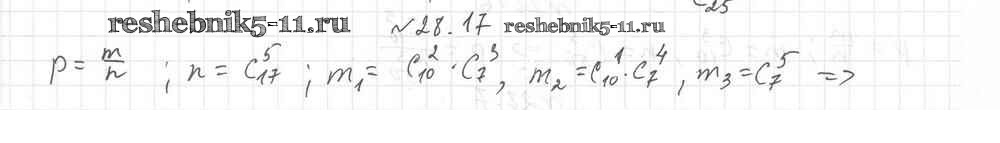 C 25
reshebnik5-11.ru №28.17 reshebnik5-11.ru
p = m/n ; n = C₁₇⁵ ; m₁ = C₁₀² · C₇³, m₂ = C₁₀¹ · C₇⁴, m₃ = C₇⁵ =>